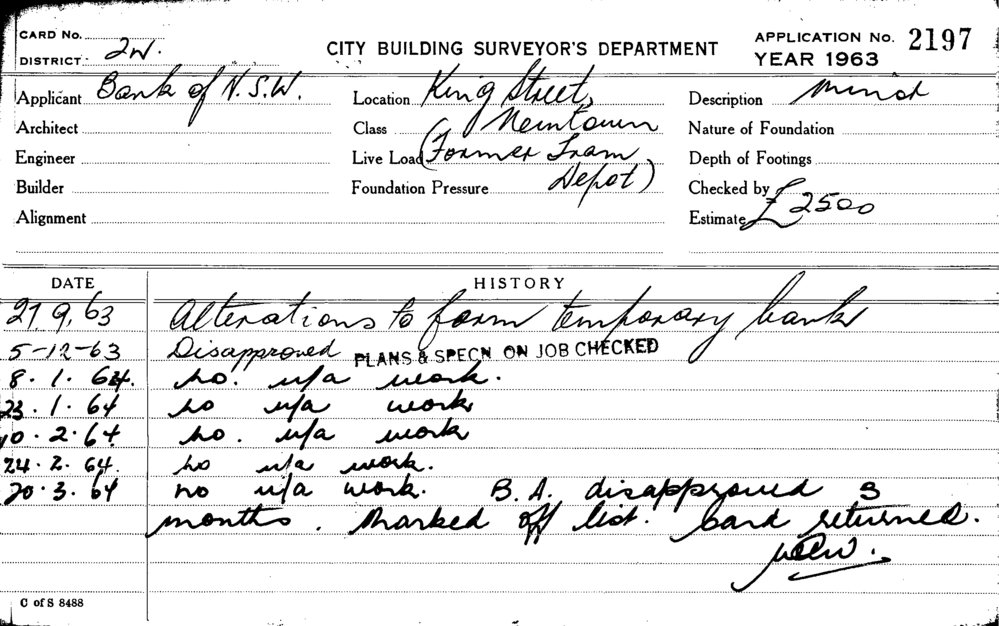 CARD No.
DISTRICT 2W.
CITY BUILDING SURVEYOR'S DEPARTMENT
APPLICATION No. 2197
YEAR 1963
Applicant Bank of N.S.W.
Location King Street,
Description Minor
Architect
Class Newtown
Nature of Foundation
Engineer
Live Load (Former Tram
Depth of Footings
Builder
Foundation Pressure Depot)
Checked by
Alignment
Estimate £2500
DATE HISTORY
27.9.63 Alterations to form temporary bank
5-12-63 Disapproved PLANS & SPECN. ON JOB CHECKED
8.1.64. no. u/a work.
23.1.64 no u/a work
10.2.64 no. u/a work
24.2.64. no u/a work.
20.3.64 no u/a work. B.A. disapproved 3
months. Marked off list. Card returned.
C of S 8488